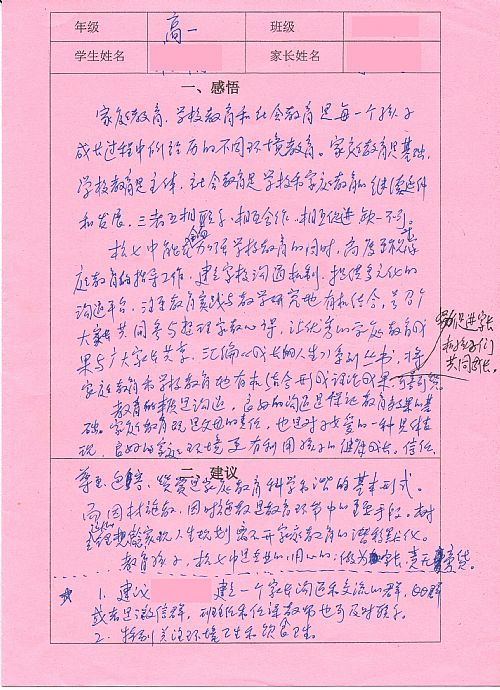 年级 高一 班级
学生姓名 家长姓名
一、感悟
家庭教育、学校教育和社会教育是每一个孩子
成长过程中所经历的不同环境教育。家庭教育是基础，
学校教育是主体，社会教育是学校和家庭教育的继续延伸
和发展，三者互相联系、相互合作、相互促进缺一不可。
杭七中能在加强学校教育的同时，高度重视家
庭教育的指导工作，建立家校沟通机制，提供多元化的
沟通平台，注重教育实践与教学研究地有机结合，号召广
大家长共同参与整理家教心得，让优秀的家庭教育成
果与广大家长共享，汇编《成长的人生》系列丛书，将
家庭教育和学校教育地有机结合形成理论成果
促进家长
和孩子们
共同成长。
教育的本质是沟通，良好的沟通是保证教育效果的基
础。家庭教育既是父母的责任，也是对子女爱的一种具体
现，良好的家庭环境更有利用孩子的健康成长。信任
二、建议
尊重、包容、赞赏是家庭教育科学和谐的基本形式。
而因材施教、因时施教是教育环节中的重要手段。树
立理想实现人生规划离不开家庭教育的潜移默化。
教育孩子，杭七中是专业的、用心的；做为家长，责无旁贷。
1. 建议 建立一个家长沟通和交流的群，QQ群
或者是微信群，班主任和任课教师也可及时联系。
2. 特别关注环境卫生和饮食卫生。